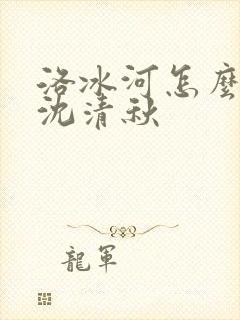 洛冰河怎麼
沈清秋
龍軍